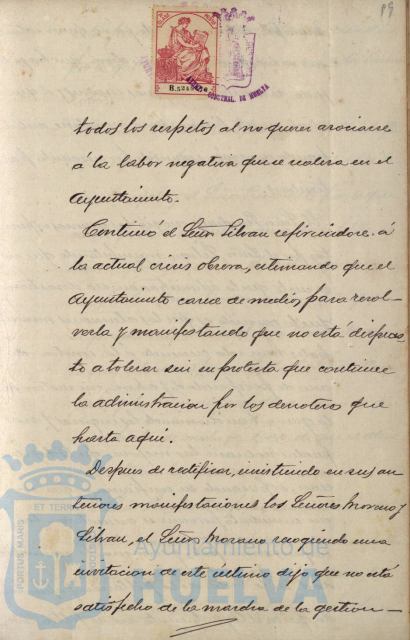 todos los respetos al no querer asociarse
á la labor negativa que se realiza en el
Ayuntamiento.
Continuó el Señor Silvan refiriendose á
la actual crisis obrera, estimando que el
Ayuntamiento carece de medios para resol-
verla y manifestando que no está dispues-
to a tolerar sin su protesta que continue
la administracion por los derroteros que
hasta aquí.
Despues de rectificar, insistiendo en sus an
teriores manifestaciones los Señores Moreno y
Silvan, el Señor Moreno recogiendo una
invitacion de este último dijo que no está
satisfecho de la marcha de la gestion
PORTUS MARIS ET TERR
Ayuntamiento de
HUELVA